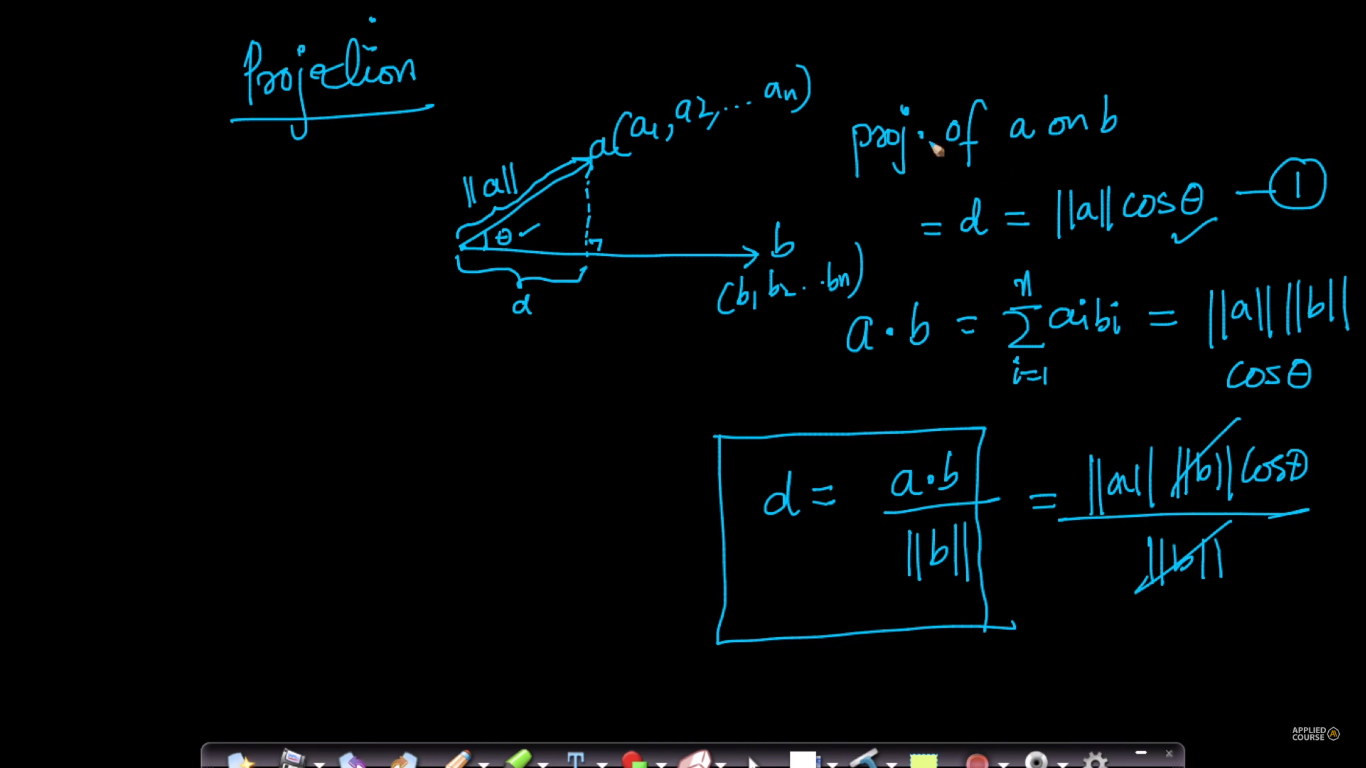 Projection
a(a1, a2, ... an)
||a||
θ ✓
b
(b1 b2 .. bn)
d
proj. of a on b
= d = ||a|| cosθ — ①
a · b = n∑i=1 aibi = ||a|| ||b||
cosθ
d = a·b / ||b|| = ||a|| ||b|| cosθ / ||b||
T
APPLIED
COURSE